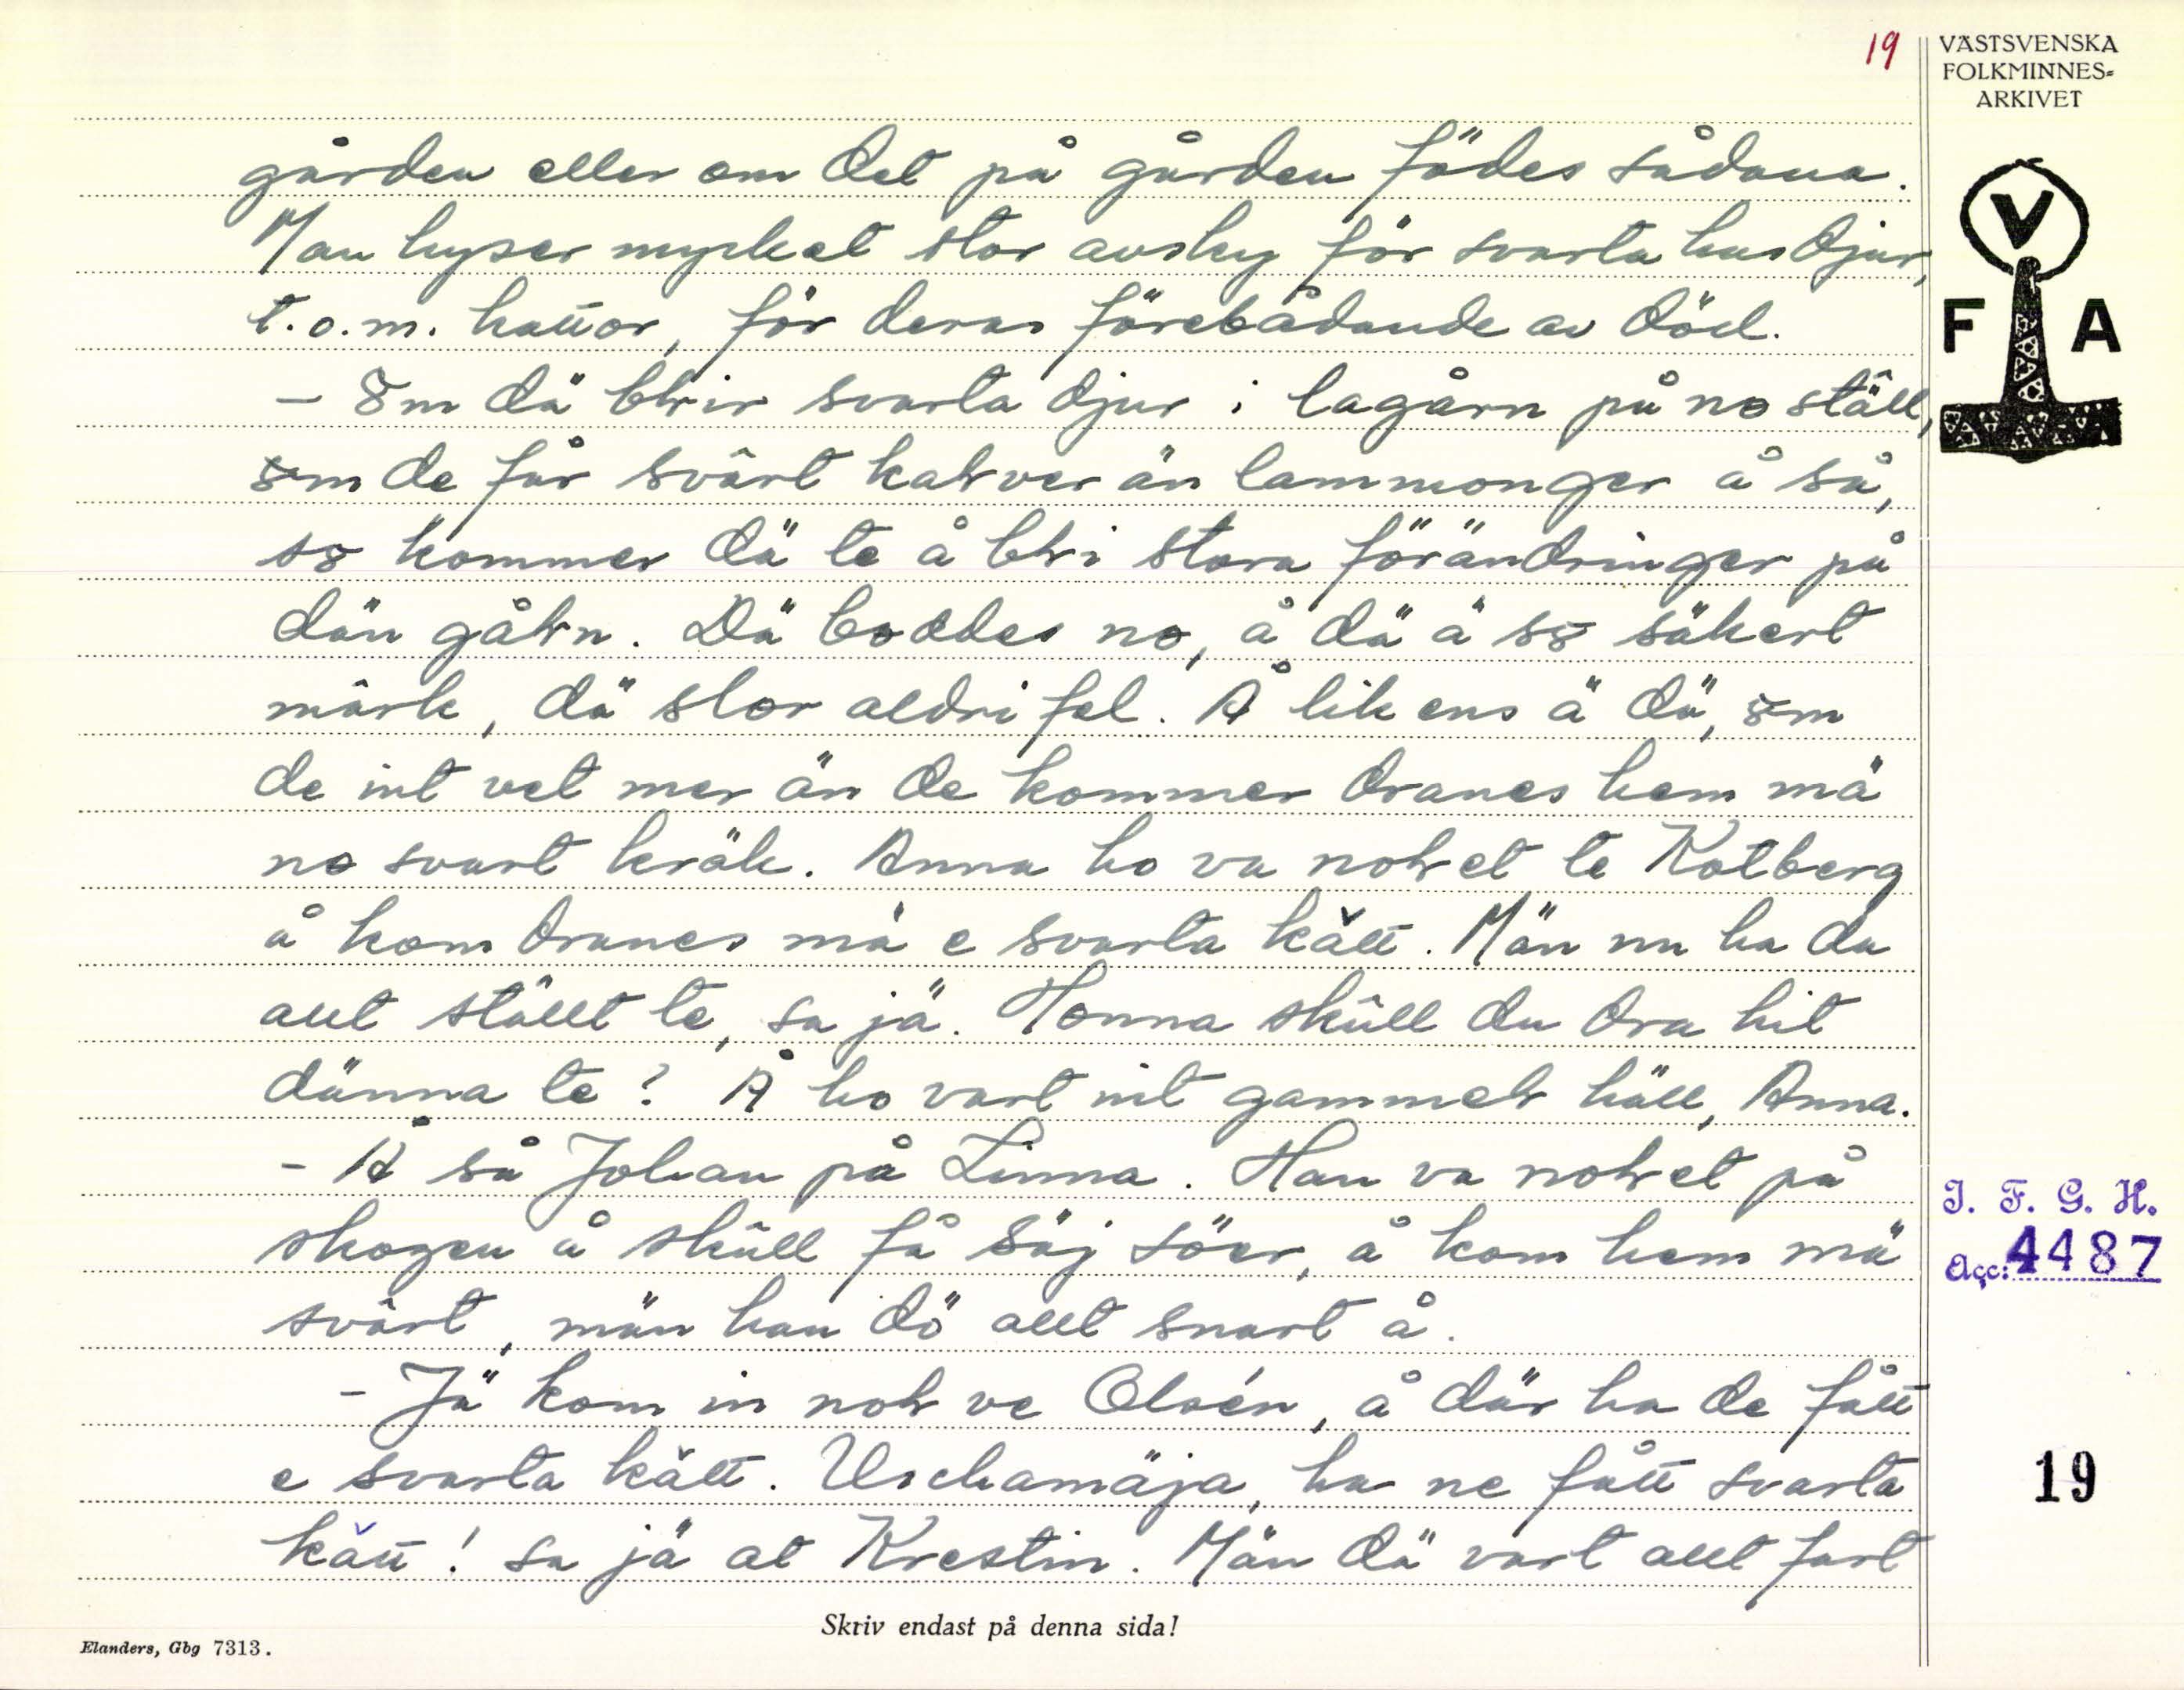 19
VÄSTSVENSKA
FOLKMINNES=
ARKIVET
V
F A
gården eller om det på gården födes sådana.
Man hyser mycket stor avsky för svarta husdjur,
t.o.m. kattor, för deras förebådande av död.
– 8m dä bhir svarta djur i lagårn på no ställ,
8m de får svårt kahver än lammonger å så,
s8 kommer dä te å bhi stora förändringer på
dän gåhn. Dä boddes no, å dä ä s8 säkert
märk, dä slor aldri fel. Å likens ä dä, 8m
de int vet mer än de kommer dranes hem mä
no svart kräk. Anna ho va nohet te Kotberg
å kom dranes mä e svarta kätt. Män nu ha du
allt ställt te, sa jä. Honna skûll du dra hit
dänna te? Å ho vart int gammeh häll, Anna.
– Å så Johan på Linna. Han va nohet på
skogen å skûll få säj söer, å kom hem mä
svårt, män han dö allt snart å.
– Jä kom in noh ve Olsén, å där ha de fått
e svarta kätt. Uschamäja, ha ne fått svarta
kätt! sa jä at Krestin. Män dä vart allt fart
J. F. G. H.
Acc: 4487
19
Skriv endast på denna sida!
Elanders, Gbg 7313.